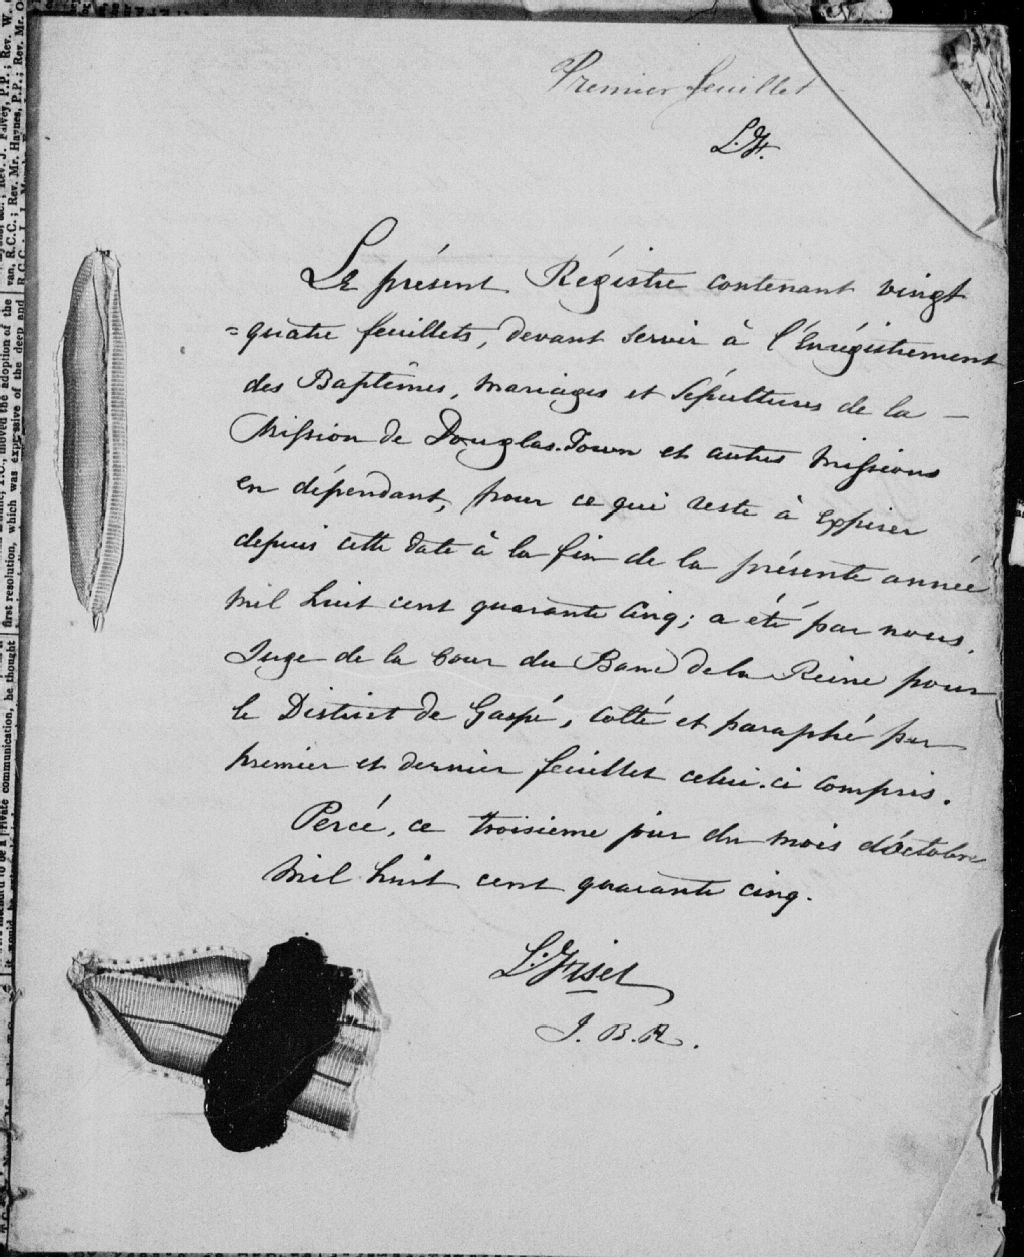 Premier feuillet
L.F.
Le présent Régistre contenant vingt
=quatre feuillets, devant servir à l'Enrégistrement
des Baptêmes, Mariages et Sépultures de la —
Mission de Douglas-Town et autres Missions
en dépendant, pour ce qui reste à Expirer
depuis cette date à la fin de la présente année
Mil huit cent quarante Cinq; a été par nous,
Juge de la Cour du Banc de la Reine pour
le District de Gaspé, Cotté et paraphé par
premier et dernier feuillet celui-ci compris.
Percé, ce troisieme jour du mois d'Octobre
Mil huit cent quarante cinq.
L. Fiset
J. B. R.
van, R.C.C.; Rev. Mr. Haynes, P.P.; Rev. Mr. O
moved the adoption of the
first resolution, which was expressive of the deep and
private communication, he thought